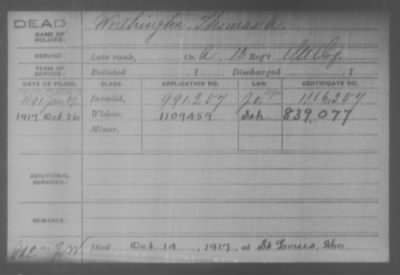 DEAD
NAME OF SOLDIER: Worthington, Thomas A.
SERVICE: Late rank, Co. A, 18 Reg't Ill. Inf.
TERM OF SERVICE: Enlisted , 1 Discharged , 1
DATE OF FILING. CLASS. APPLICATION NO. LAW. CERTIFICATE NO.
1891 Jan. Invalid, 991.257 1116.257
1917, Oct. 26 Widow, 1109459 839,077
Minor,
ADDITIONAL SERVICES:
REMARKS:
Died Oct. 14, 1917, at St Louis, Mo.